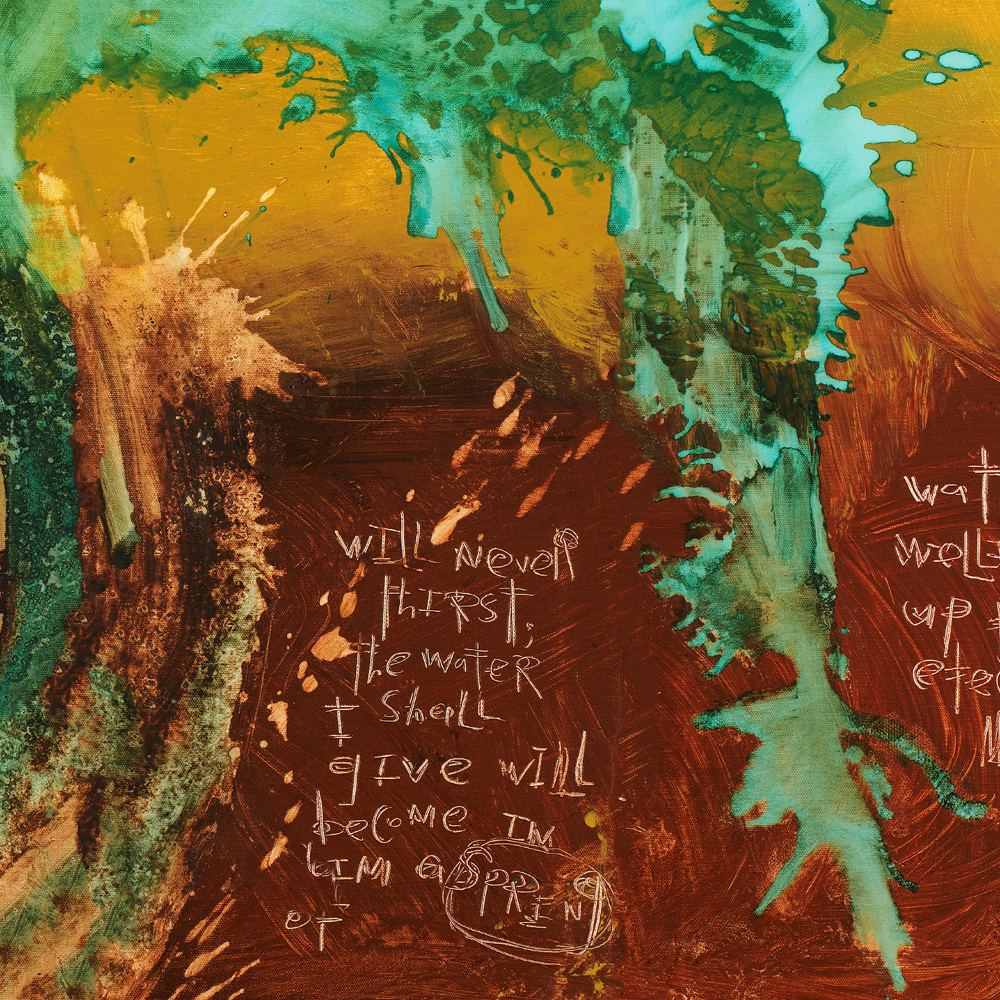 WILL NEVER
thIRST,
the water
I Shall
gIVE WILL
become IN
hIM a SPRING
OF
wat
well
up
ete